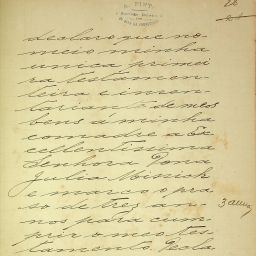 declaro que no-
meio minha
unica primei
ra testamen-
teira e inven-
tariante de meos
bens á minha
comadre a Ex
cellentissima
Senhora Dona
Julia Minich
e marco o pra
so de tres an-
nos para cum-
prir o meo tes-
tamento. Decla-
3 annos